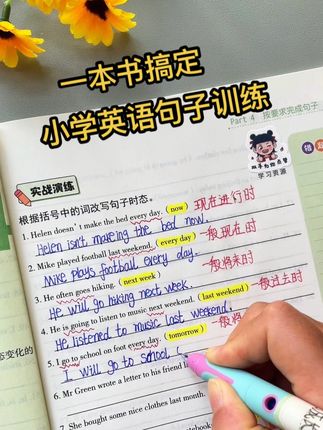 一本书搞定
小学英语句子训练
Part 4 按要求完成句子
学习资源
实战演练
根据括号中的词改写句子时态。
1. Helen doesn't make the bed every day. (now) 现在进行时
Helen isn't makeing the bed now.
2. Mike played football last weekend. (every day) 一般现在时
Mike plays football every day.
3. He often goes hiking. (next week) 一般将来时
He will go hiking next week.
4. He is going to listen to music next weekend. (last weekend) 一般过去时
He listened to music last weekend.
5. I go to school on foot every day. (tomorrow) 一般将
I will go to school
6. Mr Green wrote a letter to his friend
7. She bought some nice clothes last month.
态变化的